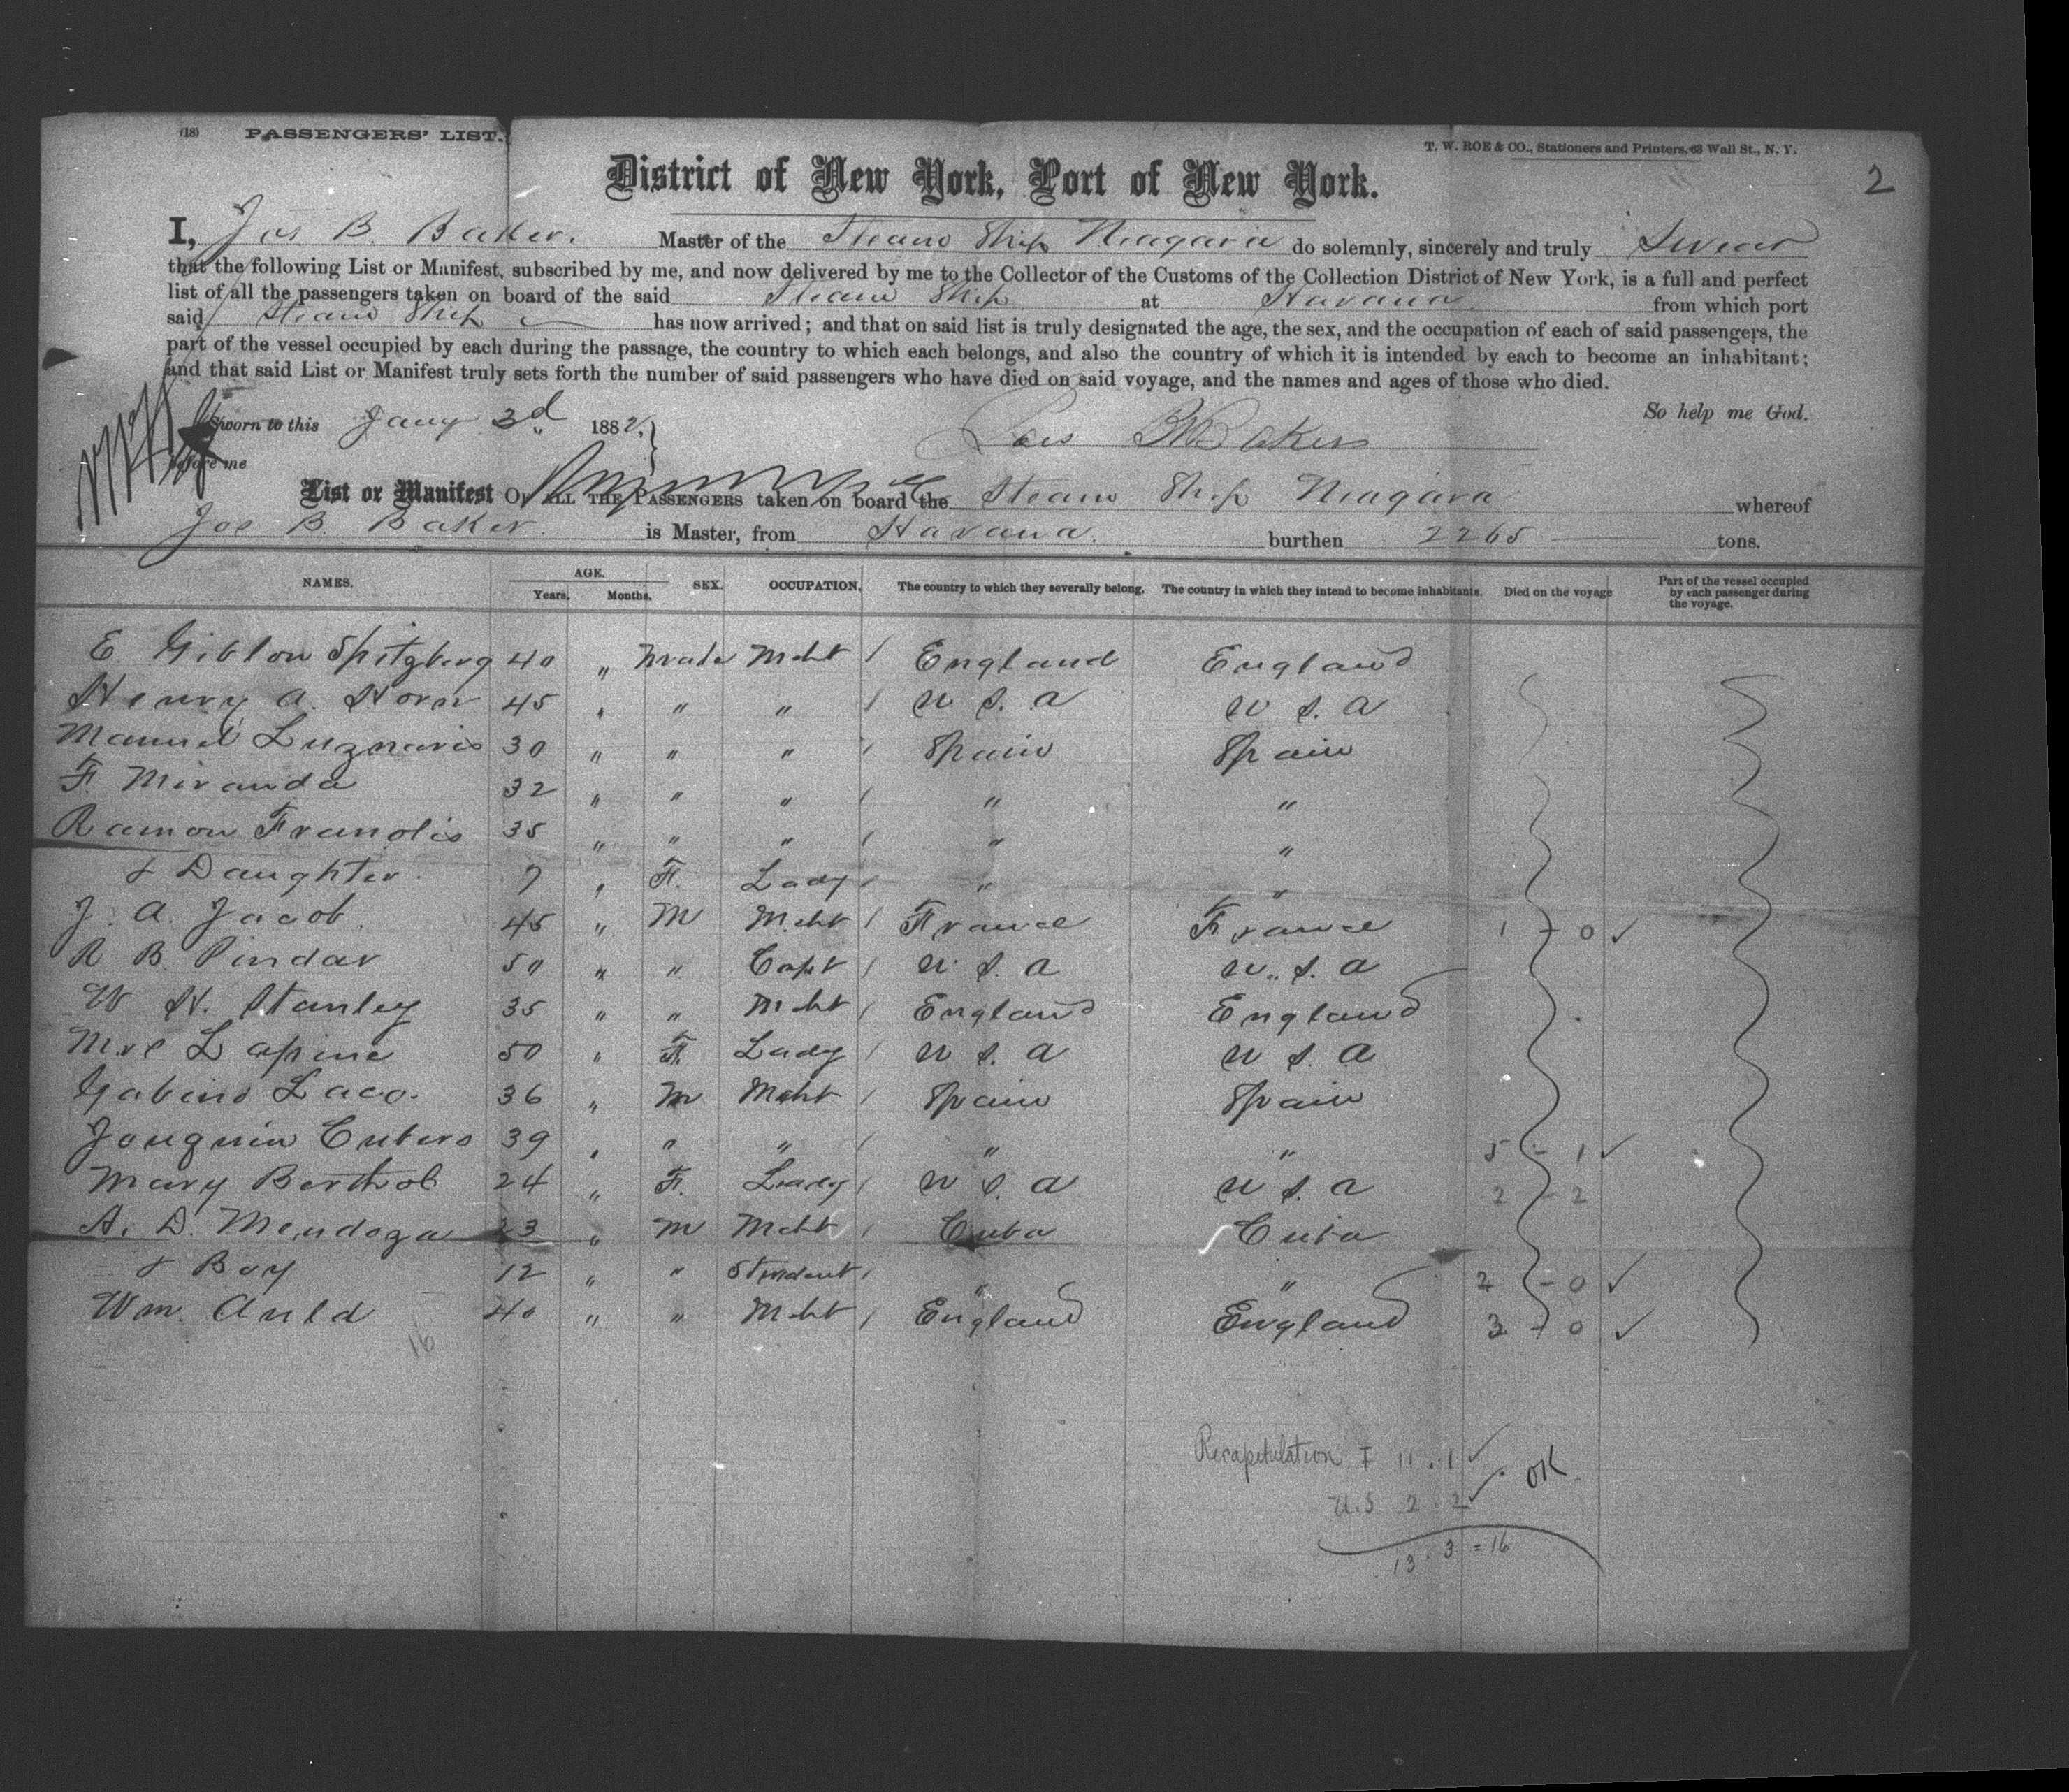 (18) PASSENGERS' LIST.
T. W. ROE & CO., Stationers and Printers, 63 Wall St., N. Y.
2
District of New York, Port of New York.
I, Jos B. Baker. Master of the Steam Ship Niagara do solemnly, sincerely and truly Swear
that the following List or Manifest, subscribed by me, and now delivered by me to the Collector of the Customs of the Collection District of New York, is a full and perfect
list of all the passengers taken on board of the said Steam Ship at Havana from which port
said Steam Ship has now arrived; and that on said list is truly designated the age, the sex, and the occupation of each of said passengers, the
part of the vessel occupied by each during the passage, the country to which each belongs, and also the country of which it is intended by each to become an inhabitant;
and that said List or Manifest truly sets forth the number of said passengers who have died on said voyage, and the names and ages of those who died.
So help me God.
Sworn to this Jany 3d 1882,
Baker
before me
List or Manifest OF ALL THE PASSENGERS taken on board the Steam Ship Niagara whereof
Jos B. Baker. is Master, from Havana. burthen 2265 tons.
NAMES. AGE. Years. Months. SEX. OCCUPATION. The country to which they severally belong. The country in which they intend to become inhabitants. Died on the voyage Part of the vessel occupied by each passenger during the voyage.
E Giblon Spitzberg 40 " Male Mcht / England England
Henry A. Horn 45 " " " / U S. A U S. A
Manuel 30 " " " / Spain Spain
F. Miranda 32 " " " / " "
Ramon 35 " " " / " "
& Daughter. 7 " F. Lady / " "
J. A. Jacob. 45 " M Mcht / France France 1 - 0 ✓
R B. Pindar 50 " " Capt / U. S. A U. S. A
W H. Stanley 35 " " Mcht / England England
Mrs Lapine 50 " F. Lady / U S. A U S. A
Gabino Laco. 36 " M Mcht / Spain Spain
Jouquin Cubero 39 " " " / " " 5 - 1 ✓
Mary Berthol 24 " F. Lady / U S. A U S. A 2 - 2
A. D. Mendoza 23 " M Mcht / Cuba Cuba
& Boy 12 " " Student / " " 2 - 0 ✓
Wm. Auld 40 " " Mcht / England England 3 - 0 ✓
16
Recapitulation F 11 . 1 ✓
OK
U.S 2 . 2 ✓
13 . 3 = 16